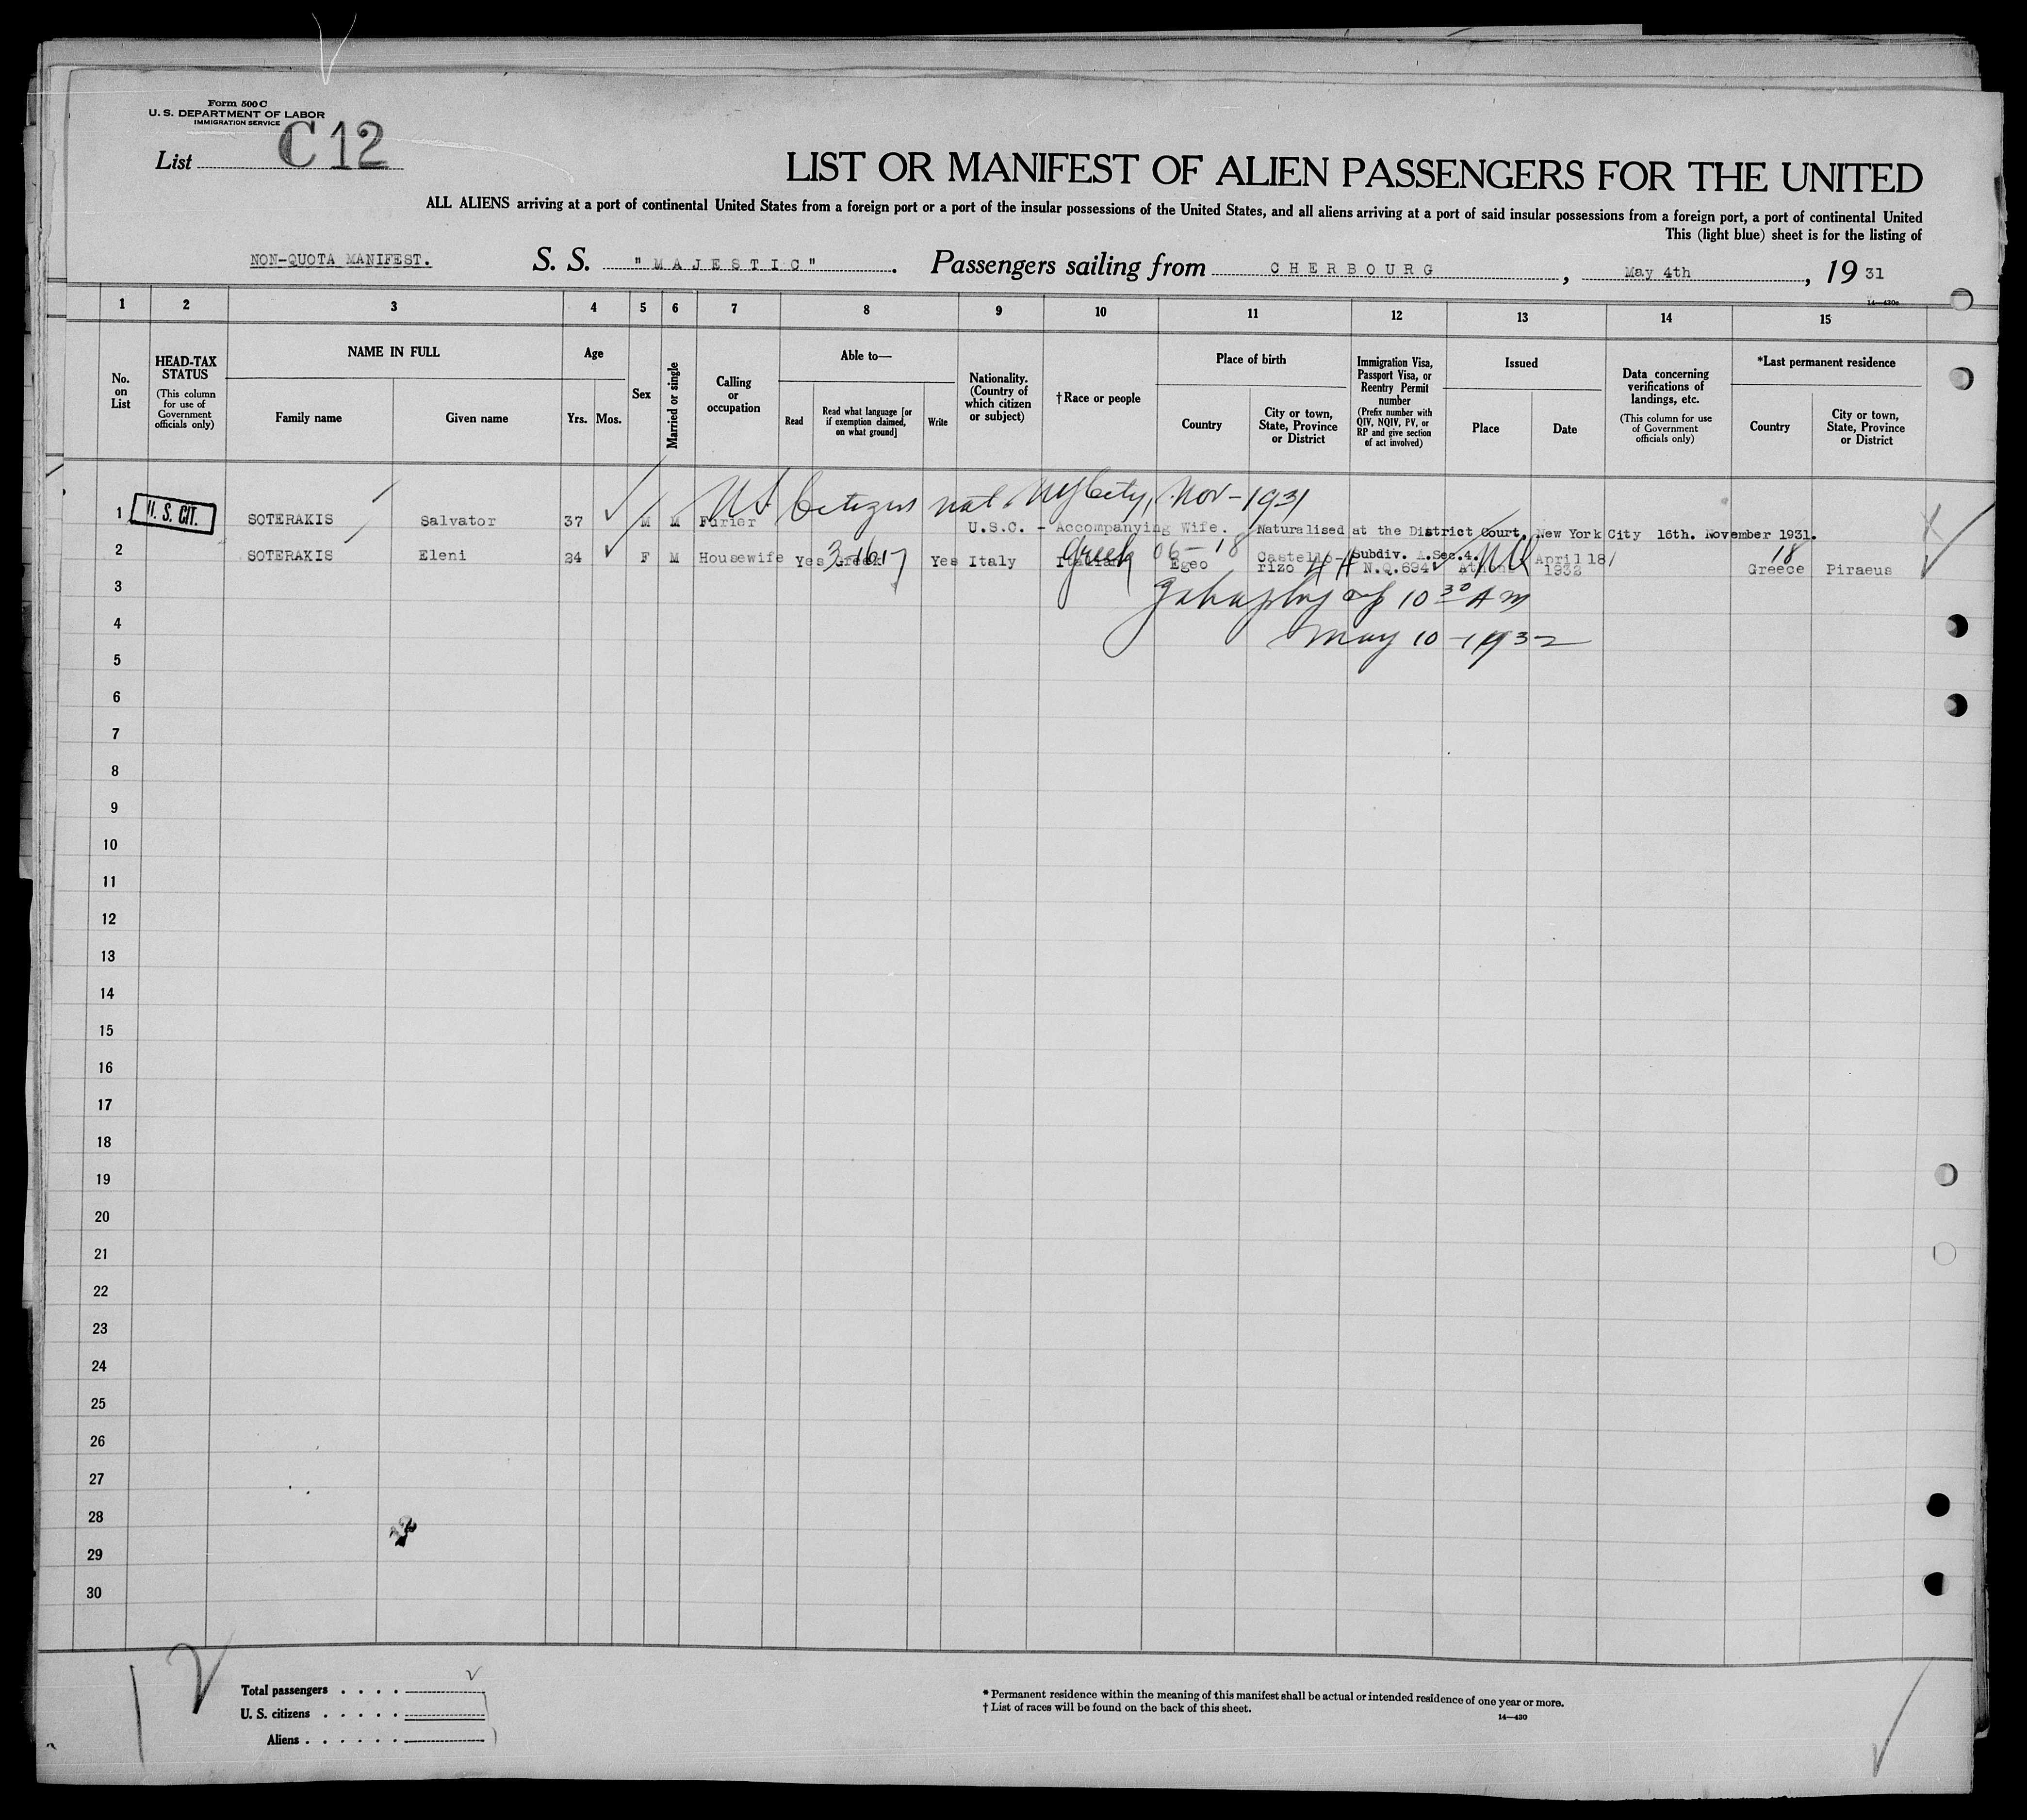 Form 500 C
U. S. DEPARTMENT OF LABOR
IMMIGRATION SERVICE
List C 12
LIST OR MANIFEST OF ALIEN PASSENGERS FOR THE UNITED
ALL ALIENS arriving at a port of continental United States from a foreign port or a port of the insular possessions of the United States, and all aliens arriving at a port of said insular possessions from a foreign port, a port of continental United
This (light blue) sheet is for the listing of
NON-QUOTA MANIFEST. S. S. "MAJESTIC". Passengers sailing from CHERBOURG, May 4th, 19 31
14—430a
1 2 3 4 5 6 7 8 9 10 11 12 13 14 15
No. on List
HEAD-TAX STATUS (This column for use of Government officials only)
NAME IN FULL
Family name Given name
Age
Yrs. Mos.
Sex
Married or single
Calling or occupation
Able to—
Read Read what language [or if exemption claimed, on what ground] Write
Nationality. (Country of which citizen or subject)
†Race or people
Place of birth
Country City or town, State, Province or District
Immigration Visa, Passport Visa, or Reentry Permit number (Prefix number with QIV, NQIV, PV, or RP and give section of act involved)
Issued
Place Date
Data concerning verifications of landings, etc. (This column for use of Government officials only)
*Last permanent residence
Country City or town, State, Province or District
US Citizens nat. NY City, Nov-1931
1 U. S. CIT. SOTERAKIS Salvator 37 M M Furier U.S.C. - Accompanying Wife. Naturalised at the District Court, New York City 16th. November 1931.
2 SOTERAKIS Eleni 24 F M Housewife Yes Greek Yes Italy Italian Greek Egeo Castello-rizo Subdiv. A.Sec.4. N.Q.694 Athens April 18/ 1932 Greece Piraeus
06-18
18
3 10 30 AM
4 May 10-1932
5
6
7
8
9
10
11
12
13
14
15
16
17
18
19
20
21
22
23
24
25
26
27
28
29
30
12
Total passengers . . . .
U. S. citizens . . . . .
Aliens . . . . . .
* Permanent residence within the meaning of this manifest shall be actual or intended residence of one year or more.
† List of races will be found on the back of this sheet.
14—430